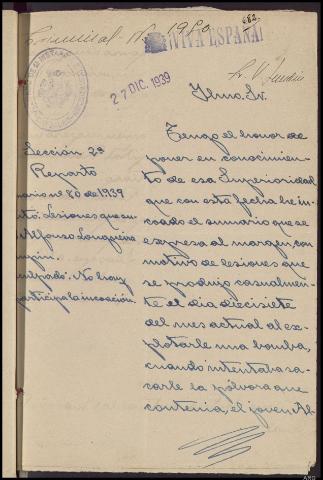 Criminal Nº 1980
682
¡VIVA ESPAÑA!
27 DIC. 1939
Ilmo. Sr.
Sección 2ª
Reparto
mario nº 80 de 1939
to: Lesiones que su
Alfonso
No hay
participa la incoación.
Tengo el honor de
poner en conocimien
to de esa Superioridad
que con esta fecha he in
coado el sumario que se
expresa al margen, con
motivo de lesiones que
se produjo casualmen-
te el día diecisiete
del mes actual al ex-
plotarle una bomba,
cuando intentaba sa-
carle la pólvora que
contenía, el joven Al-